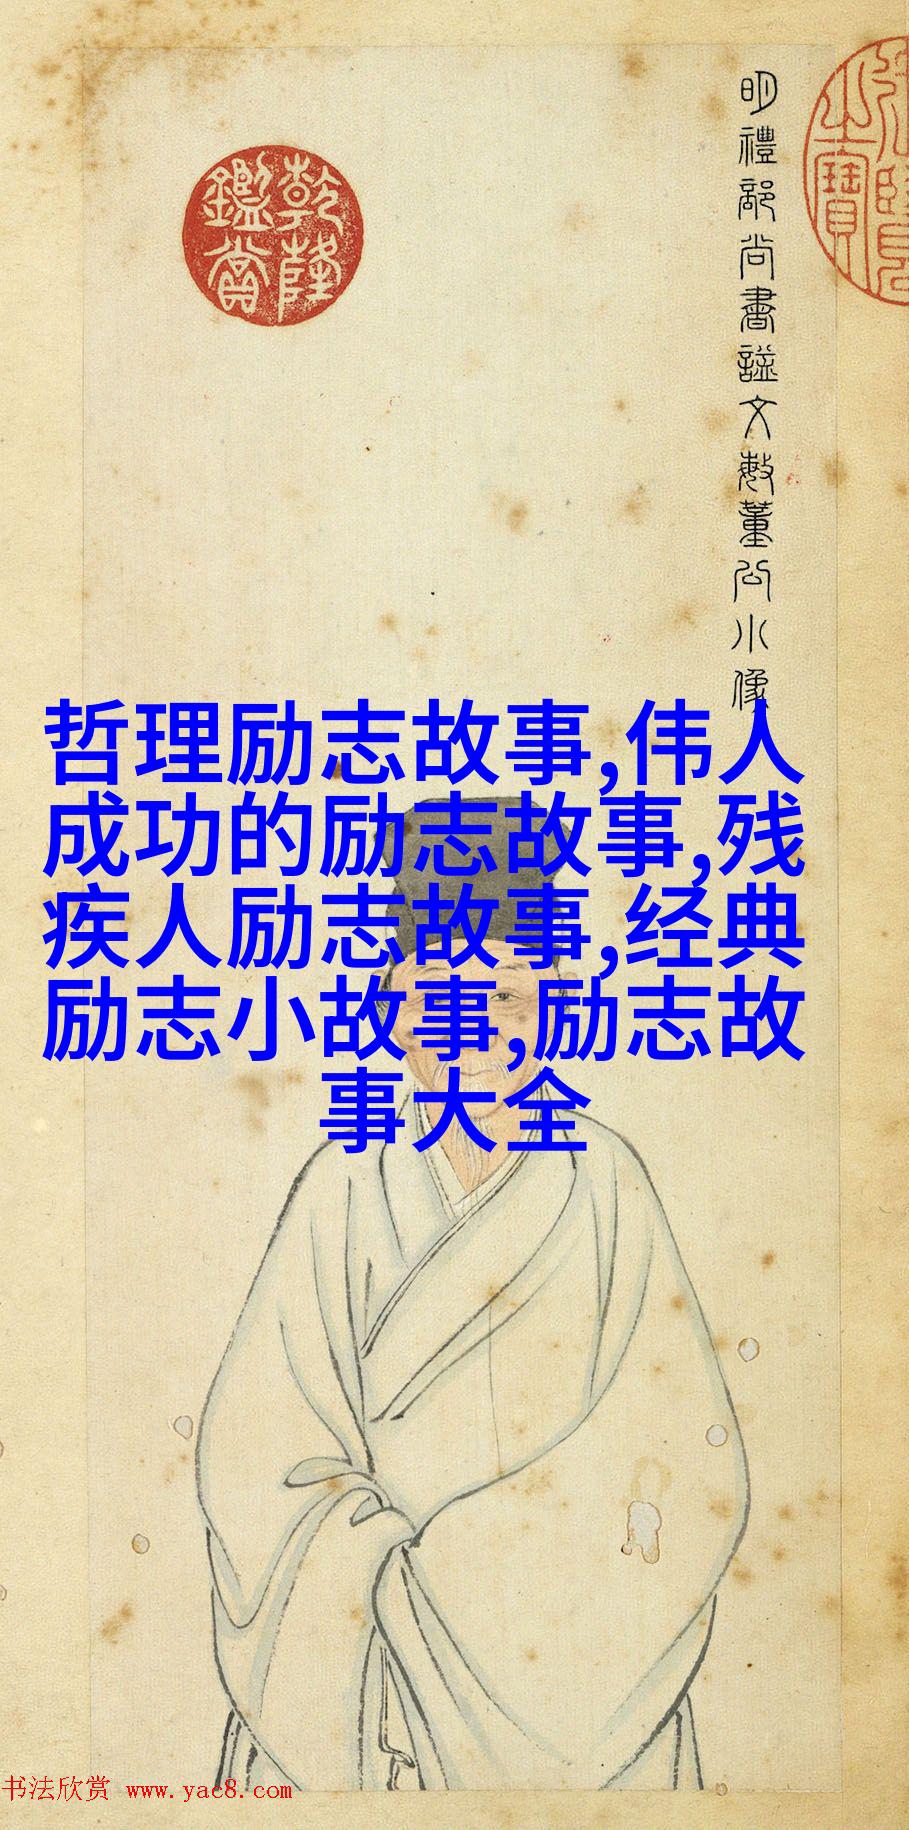 明禮部尚書諡文敏董公小像
乾隆
鑑賞
哲理励志故事,伟人
成功的励志故事,残
疾人励志故事,经典
励志小故事,励志故
事大全
书法欣赏 www.yac8.com